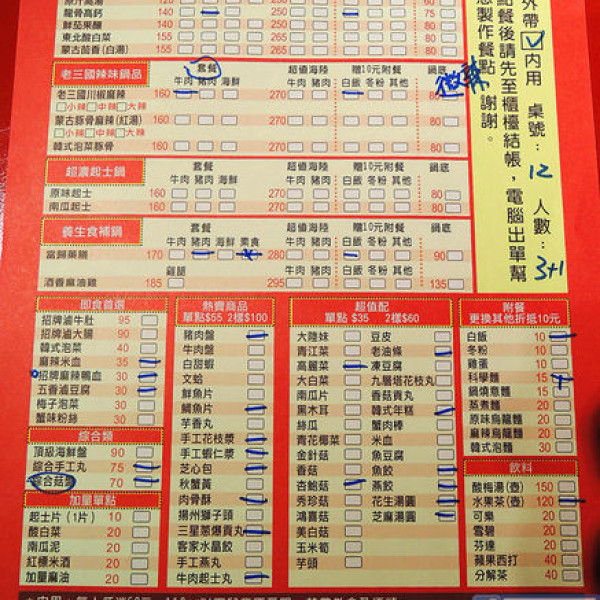 外帶 內用 桌號：12 人數：3+1
點餐後請先至櫃檯結帳，電腦出單幫
製作餐點 謝謝。
龍骨高鈣 140 75
鮮茄果釀 140 80
東北酸白菜 155 265 80
蒙古茴香(白湯) 155 265 80
老三國辣味鍋品 套餐 超值海陸 贈10元附餐 鍋底
牛肉 豬肉 海鮮 牛肉 豬肉 白飯 冬粉 其他 微辣
老三國川椒麻辣 160 270 80
小辣 中辣 大辣
蒙古豚骨麻辣(紅湯) 160 270 80
小辣 中辣 大辣
韓式泡菜豚骨 160 270 80
超濃起士鍋 套餐 超值海陸 贈10元附餐 鍋底
牛肉 豬肉 海鮮 牛肉 豬肉 白飯 冬粉 其他
原味起士 160 270 80
南瓜起士 160 270 80
養生食補鍋 套餐 超值海陸 贈10元附餐 鍋底
牛肉 豬肉 海鮮 素食 牛肉 豬肉 白飯 冬粉 其他
當歸藥膳 170 280 90
雞腿 牛肉 豬肉 白飯 冬粉 其他
酒香麻油雞 185 295 135
即食首選
招牌滷牛肚 95
招牌滷大腸 90
韓式泡菜 40
麻辣米血 35
招牌麻辣鴨血 30
五香滷豆腐 30
梅子泡菜 30
蟹味粉絲 30
綜合類
頂級海鮮盤 90
綜合手工丸 75
綜合菇盤 70
加量單點
起士片(1片) 10
酸白菜 20
南瓜泥 20
紅標米酒 20
加量麻油 20
熱賣商品
單點$55 2樣$100
豬肉盤
牛肉盤
白甜蝦
文蛤
鮮魚片
鯛魚片
芋香丸
手工花枝漿
手工蝦仁漿
芝心包
秋蟹黃
肉骨酥
揚州獅子頭
三星蔥爆貢丸
客家水晶餃
手工燕丸
牛肉起士丸
超值配
單點 $35 2樣$60
大陸妹 豆皮
青江菜 老油條
高麗菜 凍豆腐
大白菜 九層塔花枝丸
南瓜片 香菇貢丸
黑木耳 韓式年糕
絲瓜 蟹肉棒
青花椰菜 米血
金針菇 魚豆腐
香菇 魚餃
杏鮑菇 燕餃
秀珍菇 花生湯圓
鴻喜菇 芝麻湯圓
美白菇
玉米筍
芋頭
附餐
更換其他折抵10元
白飯 10
冬粉 10
雞蛋 10
科學麵 15
鍋燒意麵 15
蒸煮麵 20
原味烏龍麵 20
麻辣烏龍麵 20
韓式泡麵 30
飲料
酸梅湯(壺) 150
水果茶(壺) 120
可樂 20
雪碧 20
芬達 20
蘋果西打 40
分解茶 40